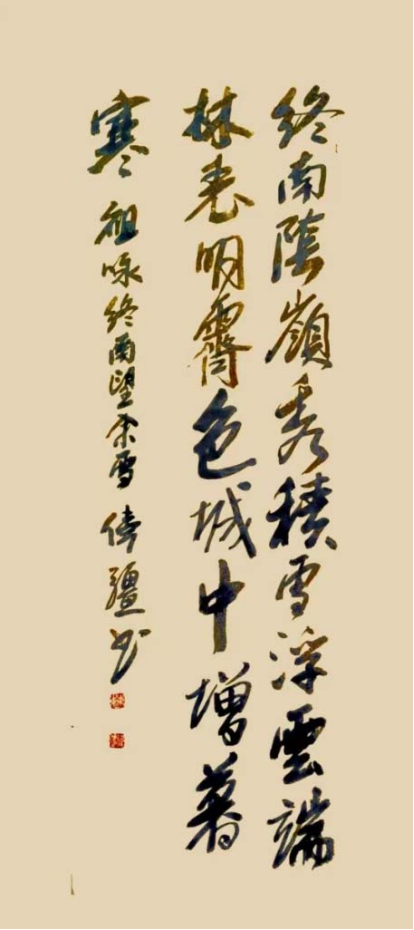 終南陰嶺秀積雪浮雲端
林表明霽色城中增暮
寒 祖咏終南望余雪 疆书